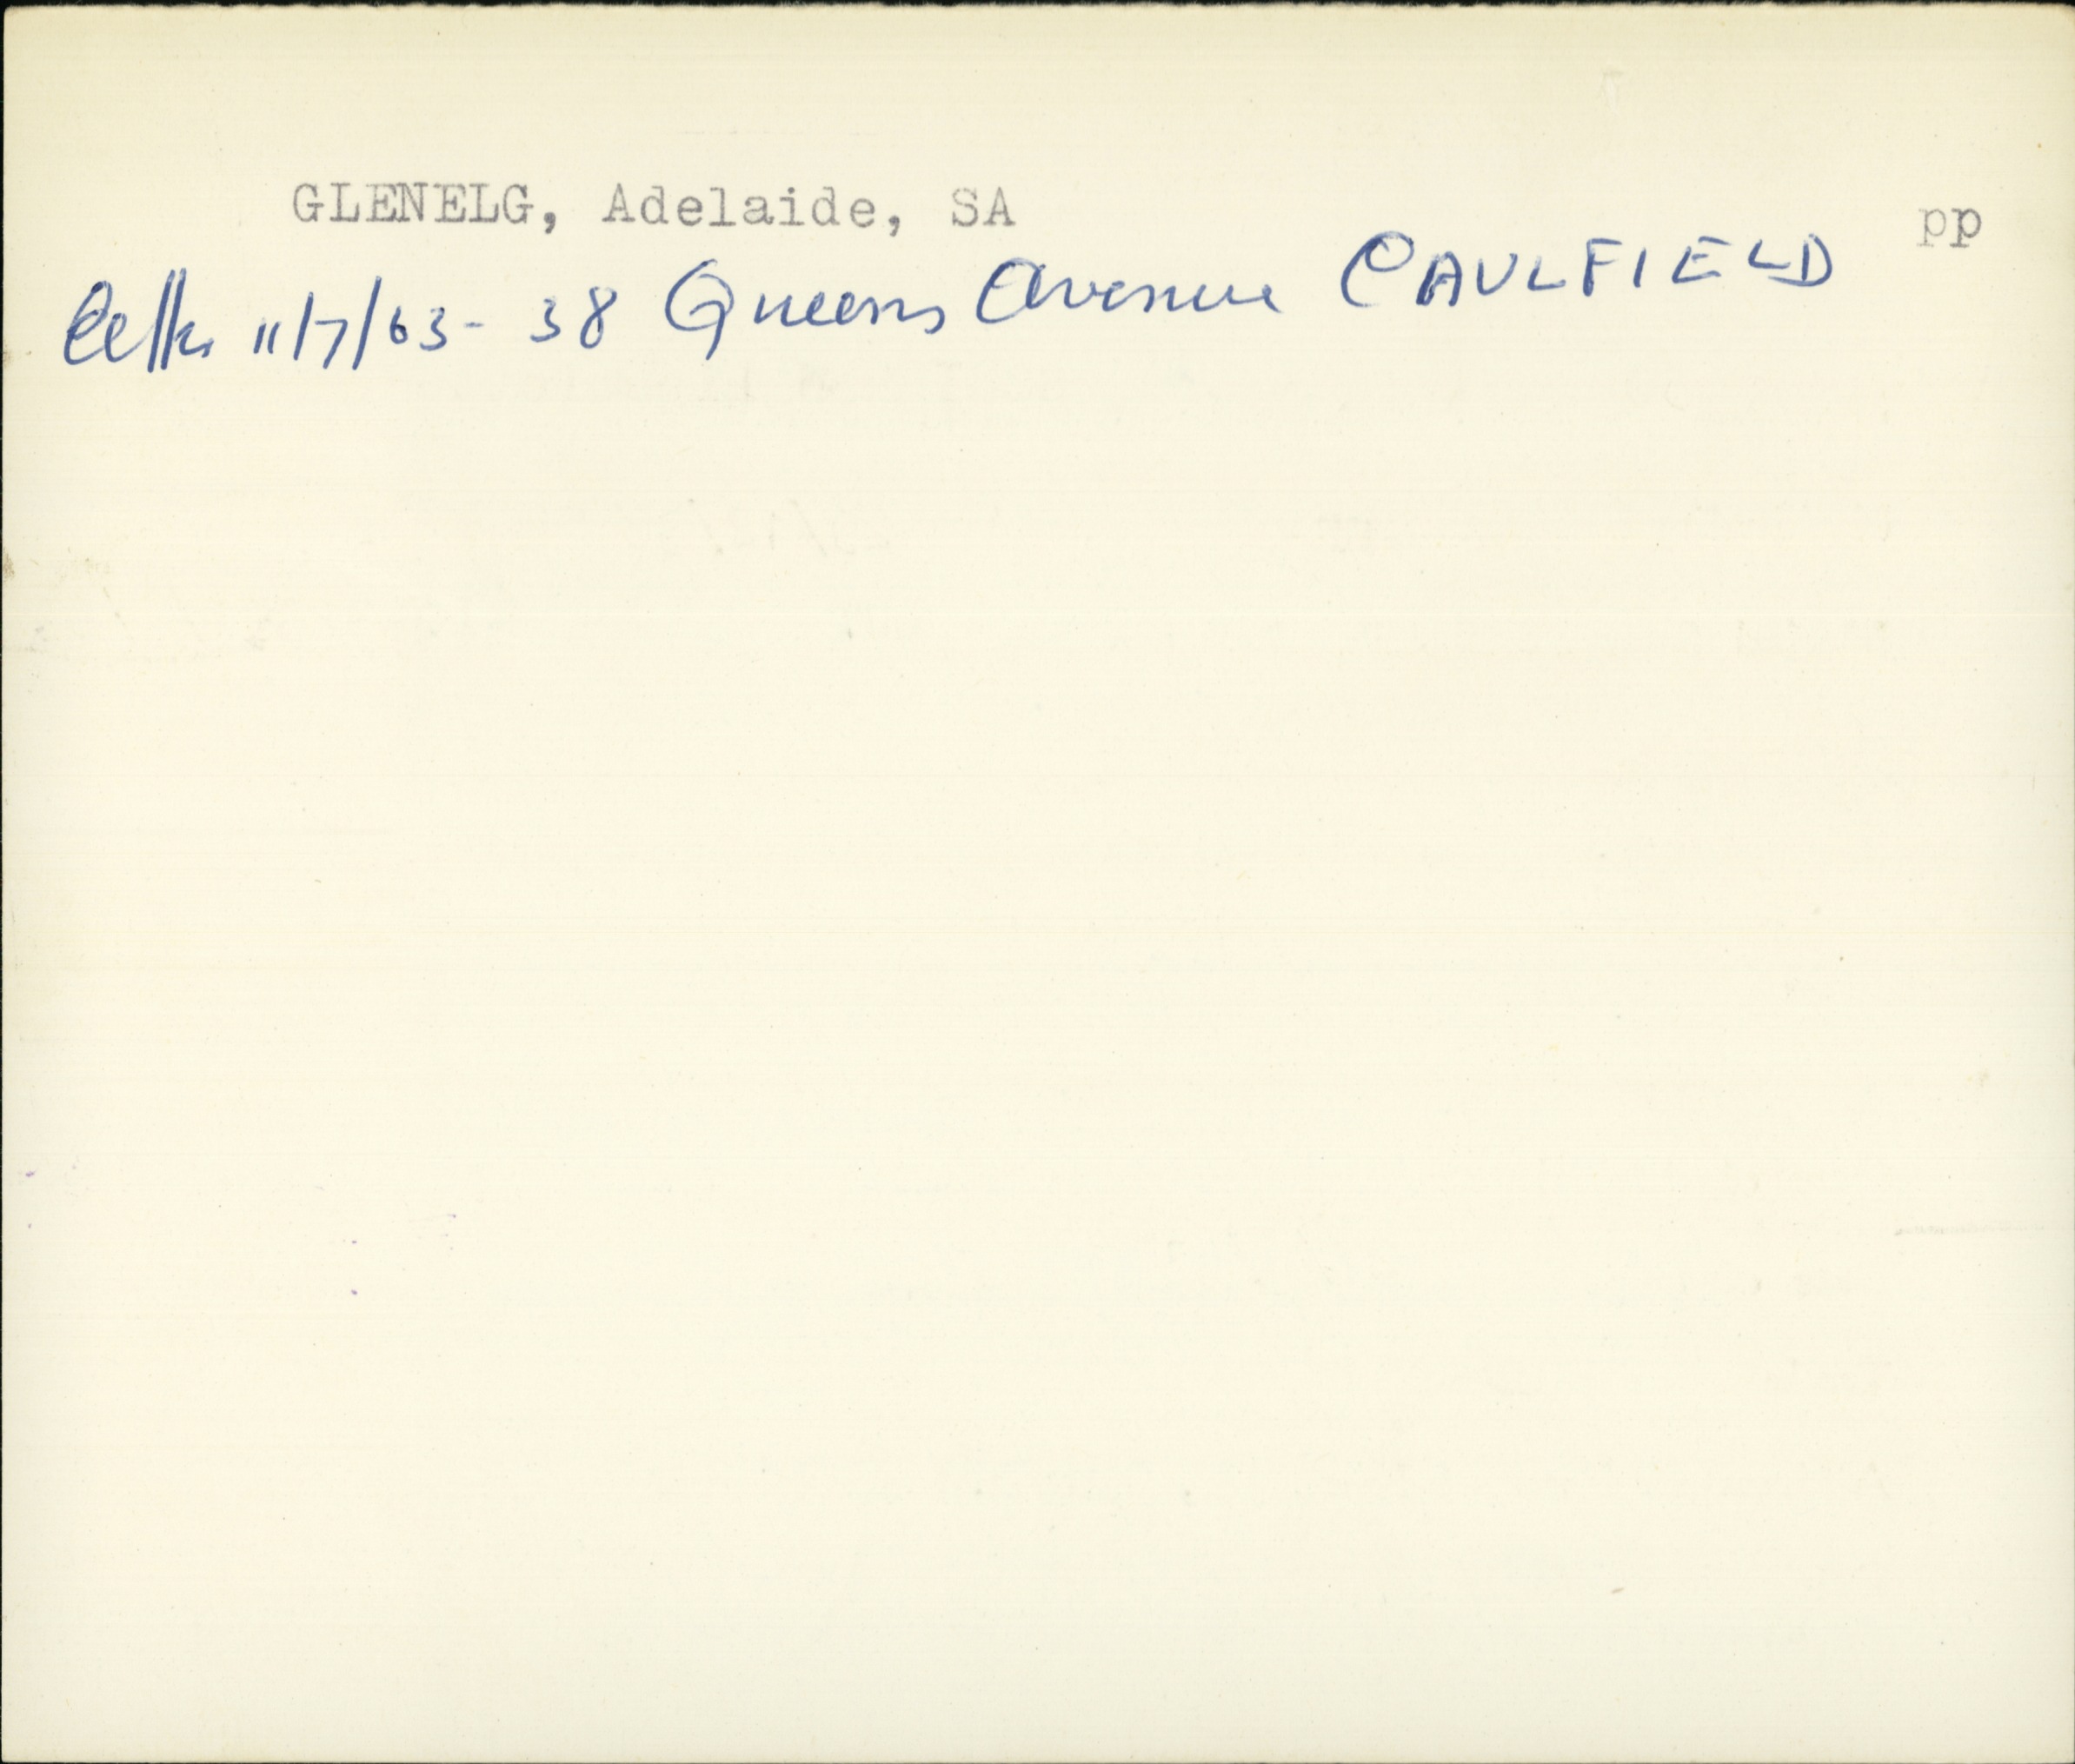 GLENELG, Adelaide, SA pp
11/7/63 - 38 Queens Avenue CAULFIELD